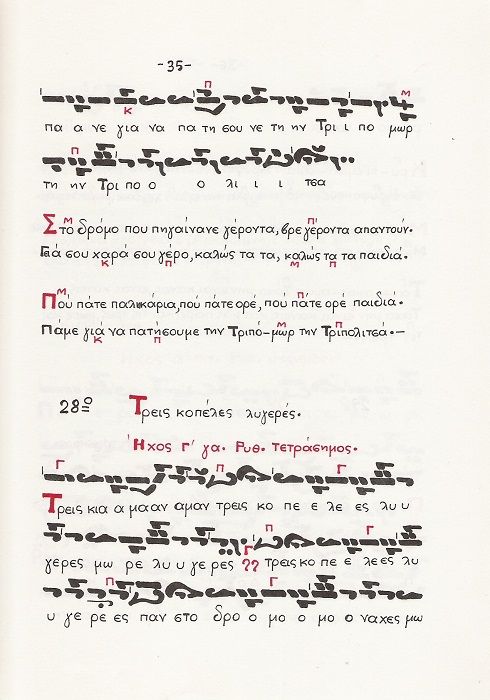 -35-
πα α νε για να πα τη σου νε τη ην Τρι ι πο μωρ
τη ην Τρι πο ο ο λι ι ι τσα
Στο δρόμο που πηγαίνανε γέροντα, βρε γέροντα απαντούν.
Γειά σου χαρά σου γέρο, καλώς τα τα, καλώς τα τα παιδιά.
Πού πάτε παλικάρια, πού πάτε ορέ, πού πάτε ορέ παιδιά.
Πάμε γιά να πατήσουμε την Τριπό-μωρ την Τριπολιτσά.-
28ο Τρεις κοπέλες λυγερές.
Ήχος Γ' γα. Ρυθ. τετράσημος.
Τρεις κια α μααν αμαν τρεις κο πε ε λε ες λυ υ
γερες μω ρε λυ υ γε ρες ?? τρεις κο πε ε λε ες λυ
υ γε ρε ες παν στο δρο ο μο ο μο ο ναχες μω